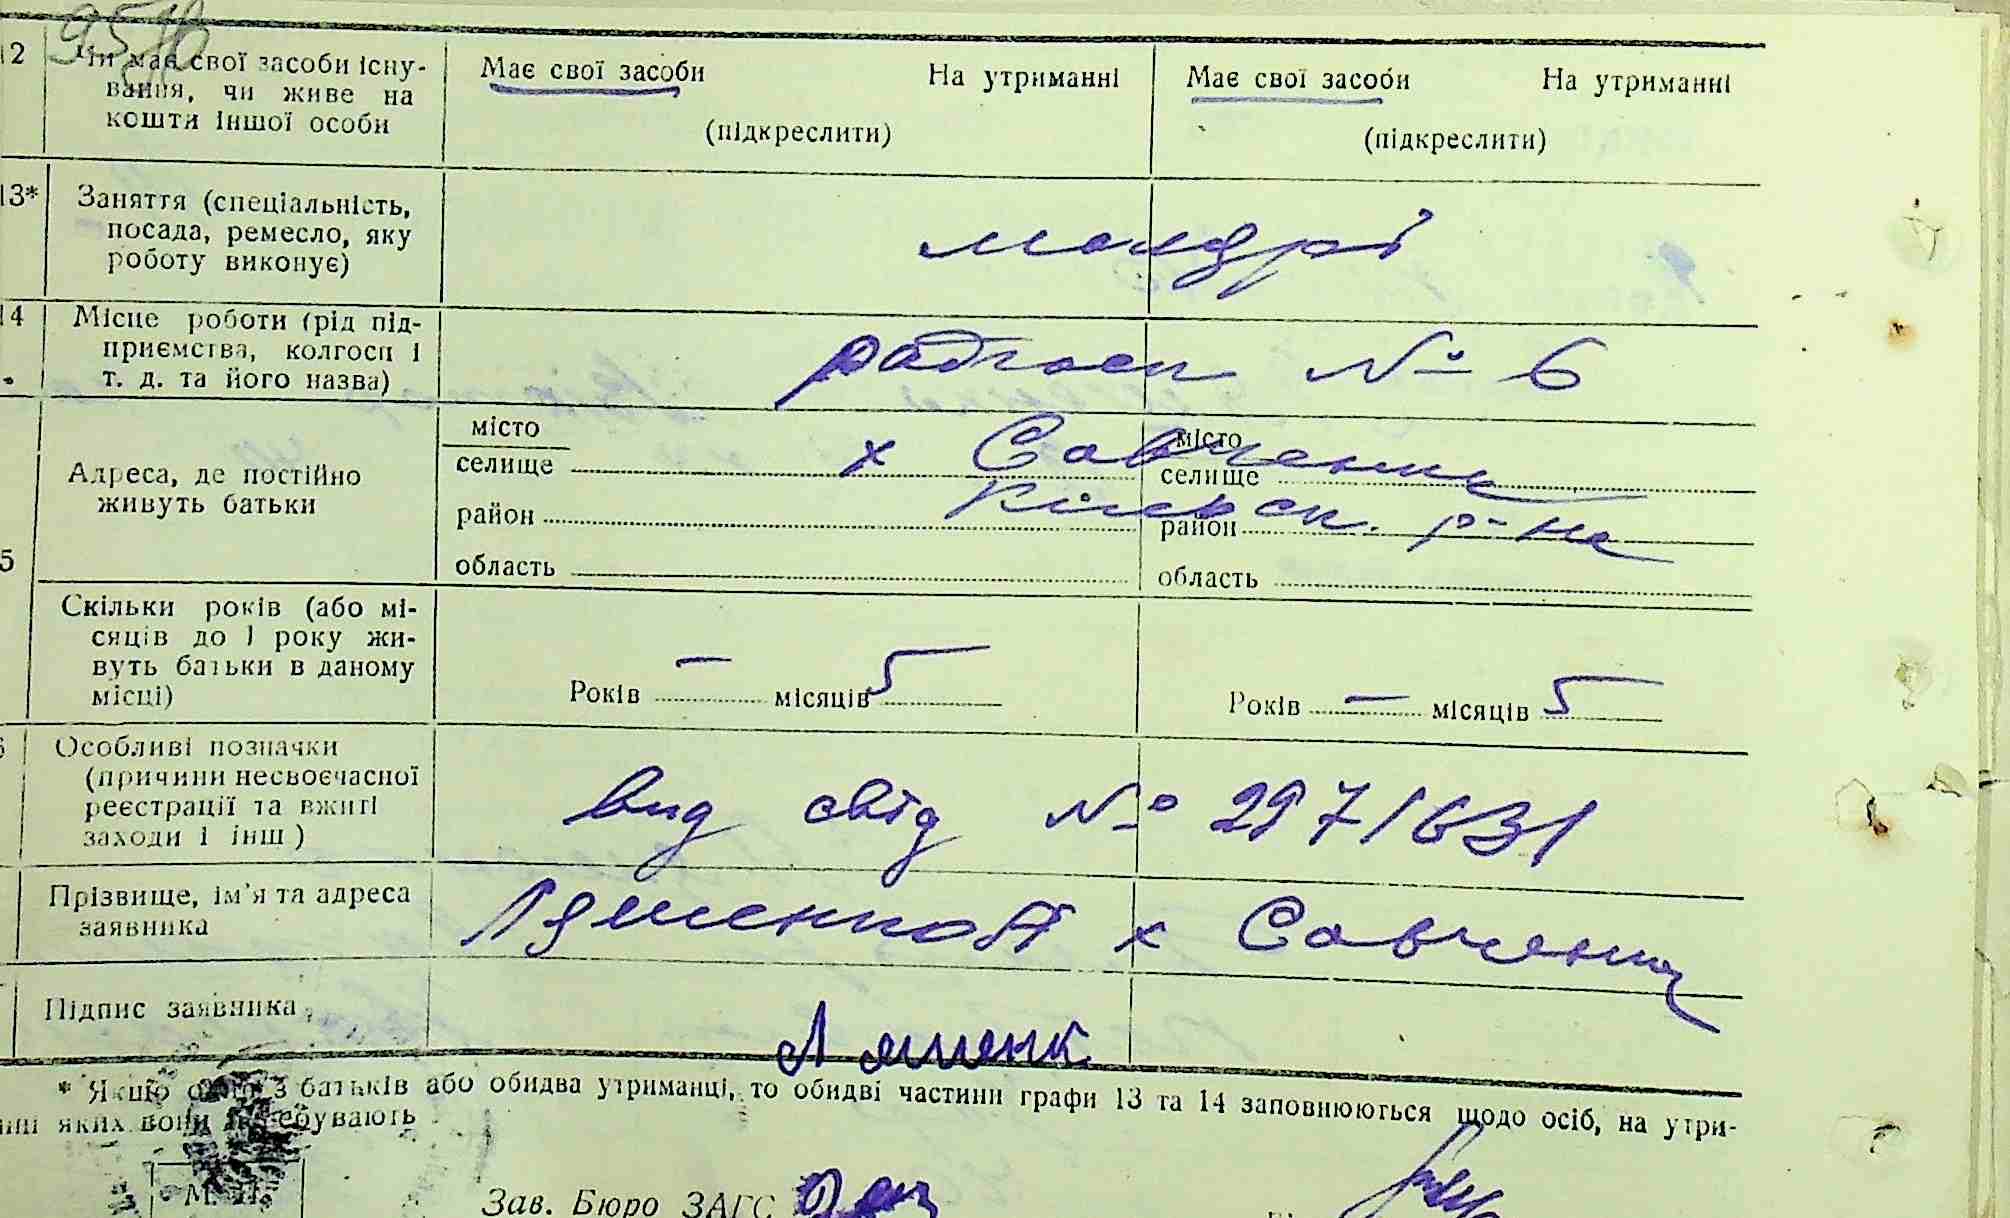 12 Чи має свої засоби існу-
вання, чи живе на
кошти іншої особи
Має свої засоби На утриманні
(підкреслити)
Має свої засоби На утриманні
(підкреслити)
13* Заняття (спеціальність,
посада, ремесло, яку
роботу виконує)
14 Місце роботи (рід під-
приємства, колгосп і
т. д. та його назва)
радгосп № 6
Адреса, де постійно
живуть батьки
місто
селище
район
область
місто
селище
район
область
х Савченка
р-на
5
Скільки років (або мі-
сяців до 1 року жи-
вуть батьки в даному
місці)
Років – місяців 5
Років – місяців 5
Особливі позначки
(причини несвоєчасної
реєстрації та вжиті
заходи і інш)
вид свід № 297/631
Прізвище, ім'я та адреса
заявника
х Савченка
Підпис заявника
* Якщо з батьків або обидва утриманці, то обидві частини графи 13 та 14 заповнюються щодо осіб, на утри-
яких вони
М. П.
Зав. Бюро ЗАГС